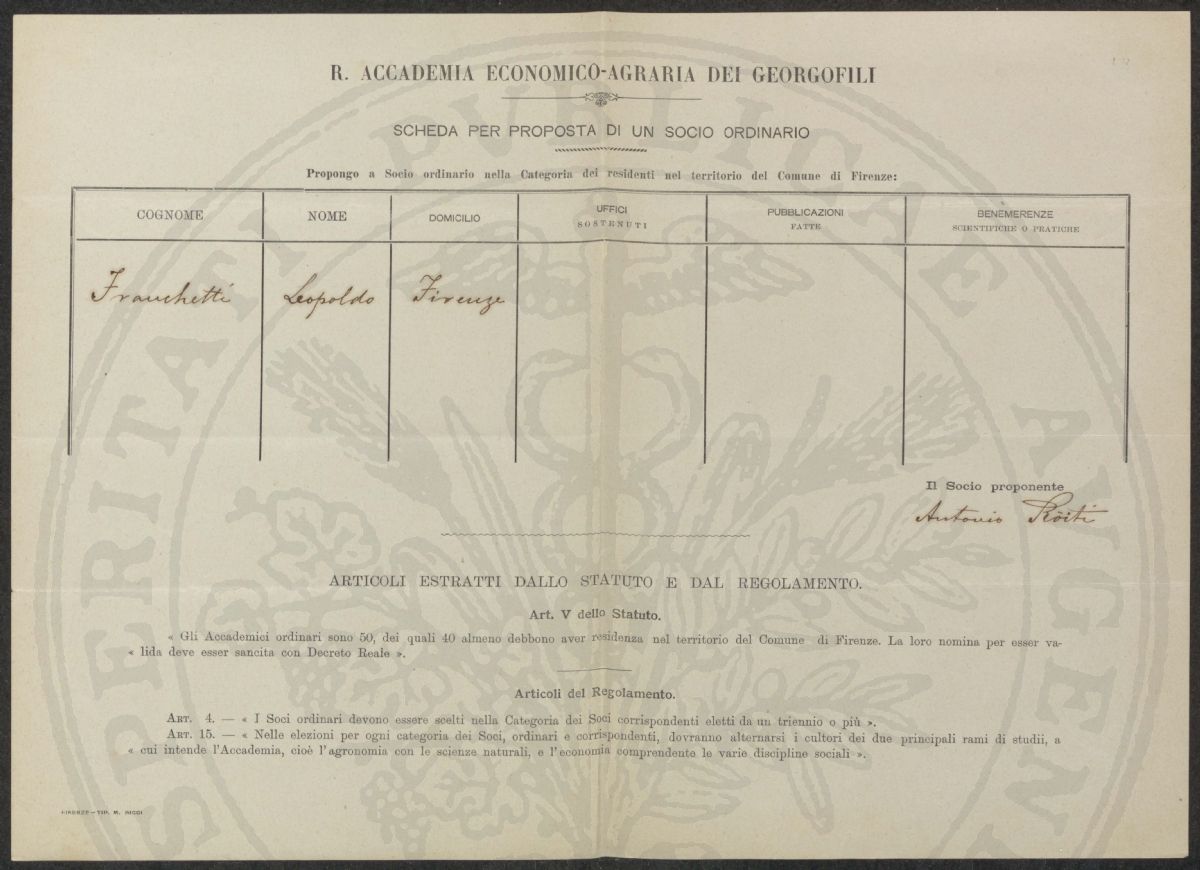 R. ACCADEMIA ECONOMICO-AGRARIA DEI GEORGOFILI
SCHEDA PER PROPOSTA DI UN SOCIO ORDINARIO
Propongo a Socio ordinario nella Categoria dei residenti nel territorio del Comune di Firenze:
COGNOME NOME DOMICILIO UFFICI SOSTENUTI PUBBLICAZIONI FATTE BENEMERENZE SCIENTIFICHE O PRATICHE
Franchetti Leopoldo Firenze
Il Socio proponente
Antonio Ròiti
ARTICOLI ESTRATTI DALLO STATUTO E DAL REGOLAMENTO.
Art. V dello Statuto.
« Gli Accademici ordinari sono 50, dei quali 40 almeno debbono aver residenza nel territorio del Comune di Firenze. La loro nomina per esser va-
« lida deve esser sancita con Decreto Reale ».
Articoli del Regolamento.
ART. 4. — « I Soci ordinari devono essere scelti nella Categoria dei Soci corrispondenti eletti da un triennio o più ».
ART. 15. — « Nelle elezioni per ogni categoria dei Soci, ordinari e corrispondenti, dovranno alternarsi i cultori dei due principali rami di studii, a
« cui intende l'Accademia, cioè l'agronomia con le scienze naturali, e l'economia comprendente le varie discipline sociali ».
FIRENZE—TIP. M. RICCI
PROSPERITATI PVBLICAE AVGENDAE